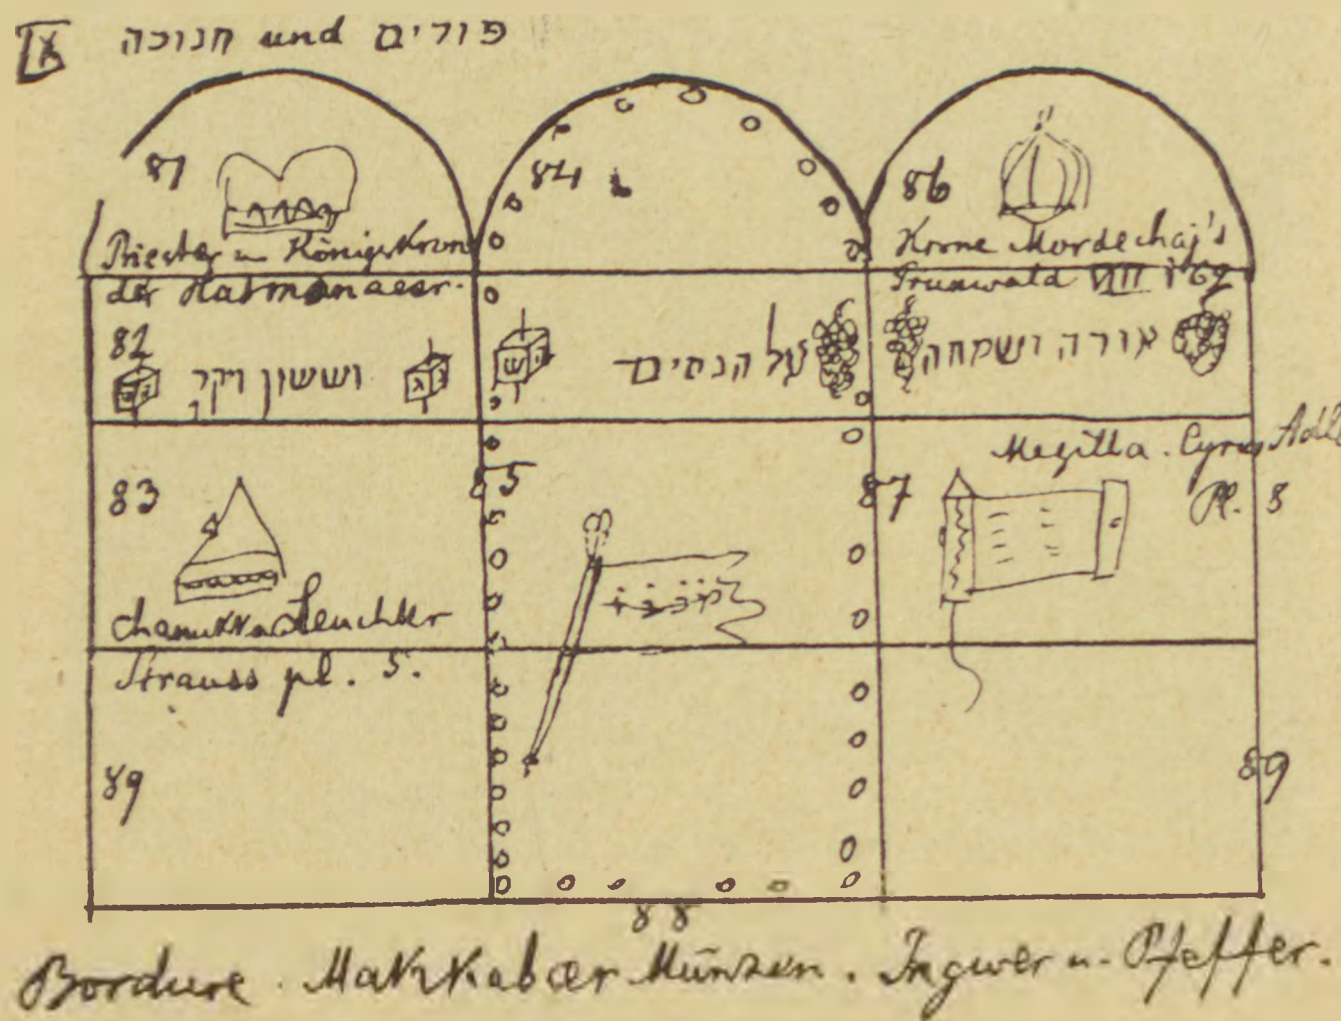 IX פורים und חנוכה
81
Priester u. Königskron
der Hasmonaeer.
84
86
Krone Mordechaj's
Grunwald VIII
82
וששון ויקר
על הנסים
אורה ושמחה
83
Chanukka Leuchter
Strauss pl. 5.
85
87
Megilla. Cyrus Adle
Pl. 8
89
89
88
Bordure. Makkabaer Münzen. Ingwer u. Pfeffer.